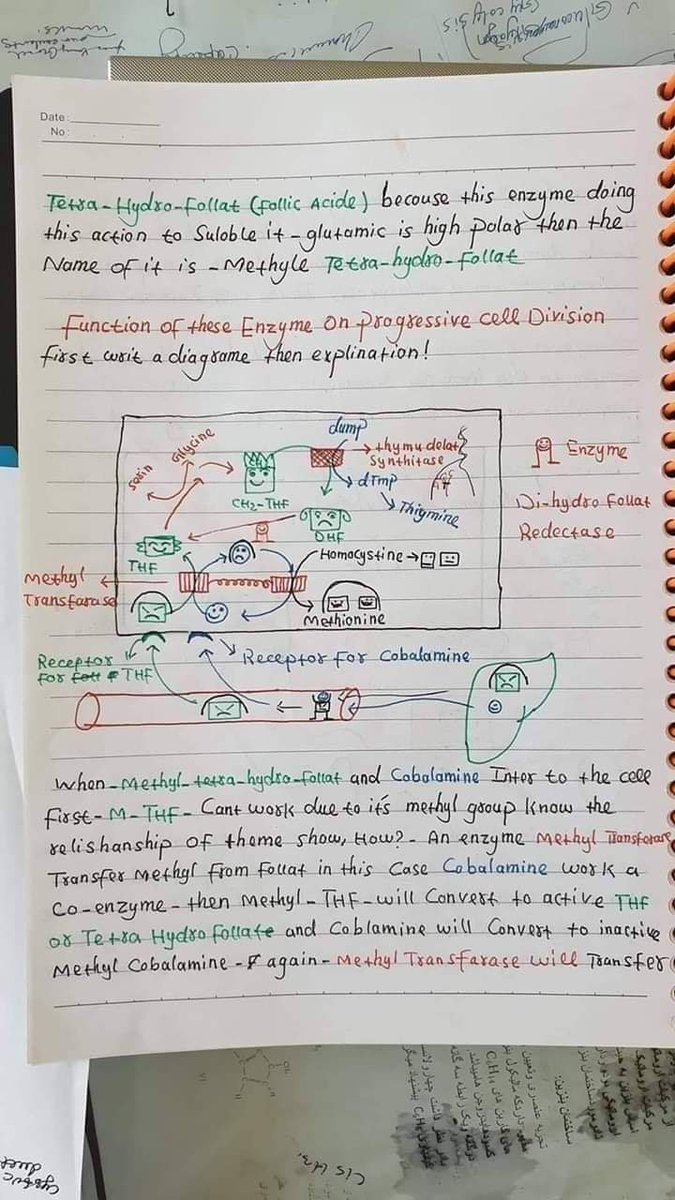 Glycolysis
Date:
No:
Tetra-Hydro-Follat (Follic Acide) becouse this enzyme doing
this action to Suloble it - glutamic is high polar then the
Name of it is - Methyle Tetra-hydro-Follat
Function of these Enzyme on progressive cell Division
first writ a diagrame then explination!
dump
Glycine
Serin
thymudelat
Synthitase
CH2-THF
dTmp
Thigmine
DHF
THF
Homocystine
Methionine
Enzyme
Di-hydro Follat
Redectase
Methyl
Transfarase
Receptor
for THF
Receptor for Cobalamine
When - Methyl - tetra-hydro-Follat and Cobalamine Inter to the cell
first - M-THF - Cant work due to it's methyl group know the
relishanship of theme show, How? - An enzyme Methyl Transfarase
Transfer Methyl from Follat in this Case Cobalamine work a
Co-enzyme - then Methyl-THF - will Convert to active THF
or Tetra Hydro Follate and Coblamine will Convert to inactive
Methyl Cobalamine - again - Methyl Transfarase will Transfer
CIS